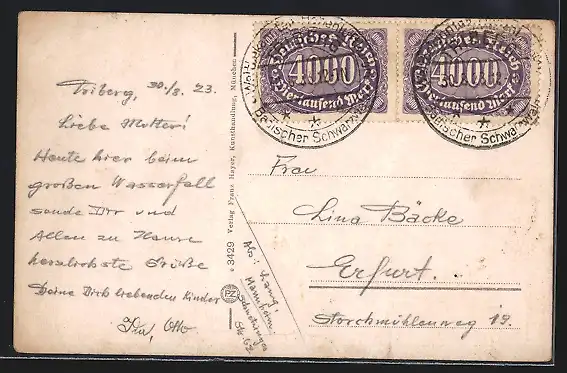 Deutsches Reich
4000
Viertausend Mark
Deutsches Reich
4000
Viertausend Mark
Badischer Schwarzwald
Badischer Schwarzwald
Triberg, 30./8. 23.
Liebe Mutter!
Heute hier beim
großen Wasserfall
sende Dir und
Allen zu Hause
herzlichste Grüße
Deine Dich liebenden Kinder
Otto
c 3429 Verlag Franz Hayer, Kunsthandlung, München
PZ
Abs: Lang,
Mannheim
Str. 62
Frau
Lina Bäcke
Erfurt.
Storchmühlenweg 19.